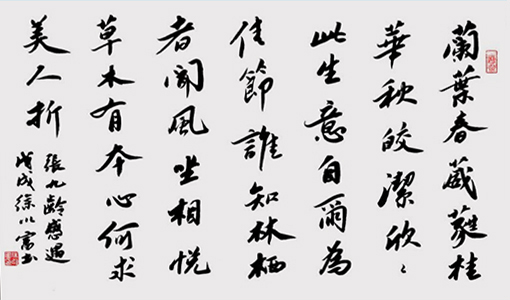 蘭葉春葳蕤桂
華秋皎潔欣〻
此生意自爾為
佳節誰知林栖
者聞風坐相悅
草木有本心何求
美人折
張九齡感遇
戊戌徐 書